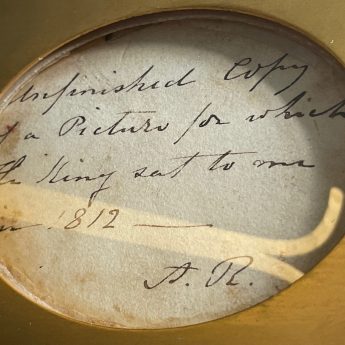 Unfinished Copy
of a Picture for which
The King sat to me
in 1812 —
A. R.